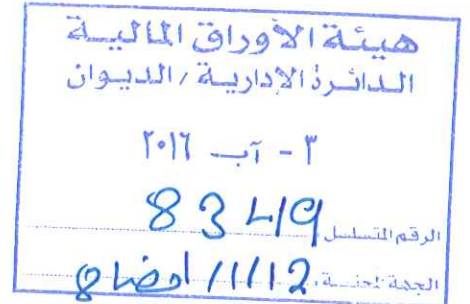 هيئة الأوراق المالية
الدائرة الإدارية / الديوان
٣ - آب ٢٠١٦
الرقم المتسلسل 8349
الجهة المختصة 11/1/12 افصاح